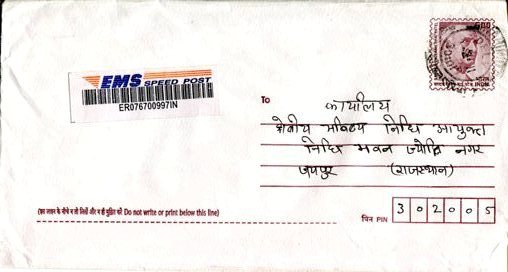 500
भारत INDIA
EMS SPEED POST
ER076700997IN
To
कार्यालय
क्षेत्रीय भविष्य निधि आयुक्त
निधि भवन ज्योति नगर
जयपुर (राजस्थान)
(इस लाइन के नीचे न तो लिखें और न ही मुद्रित करें Do not write or print below this line)
पिन PIN 302005